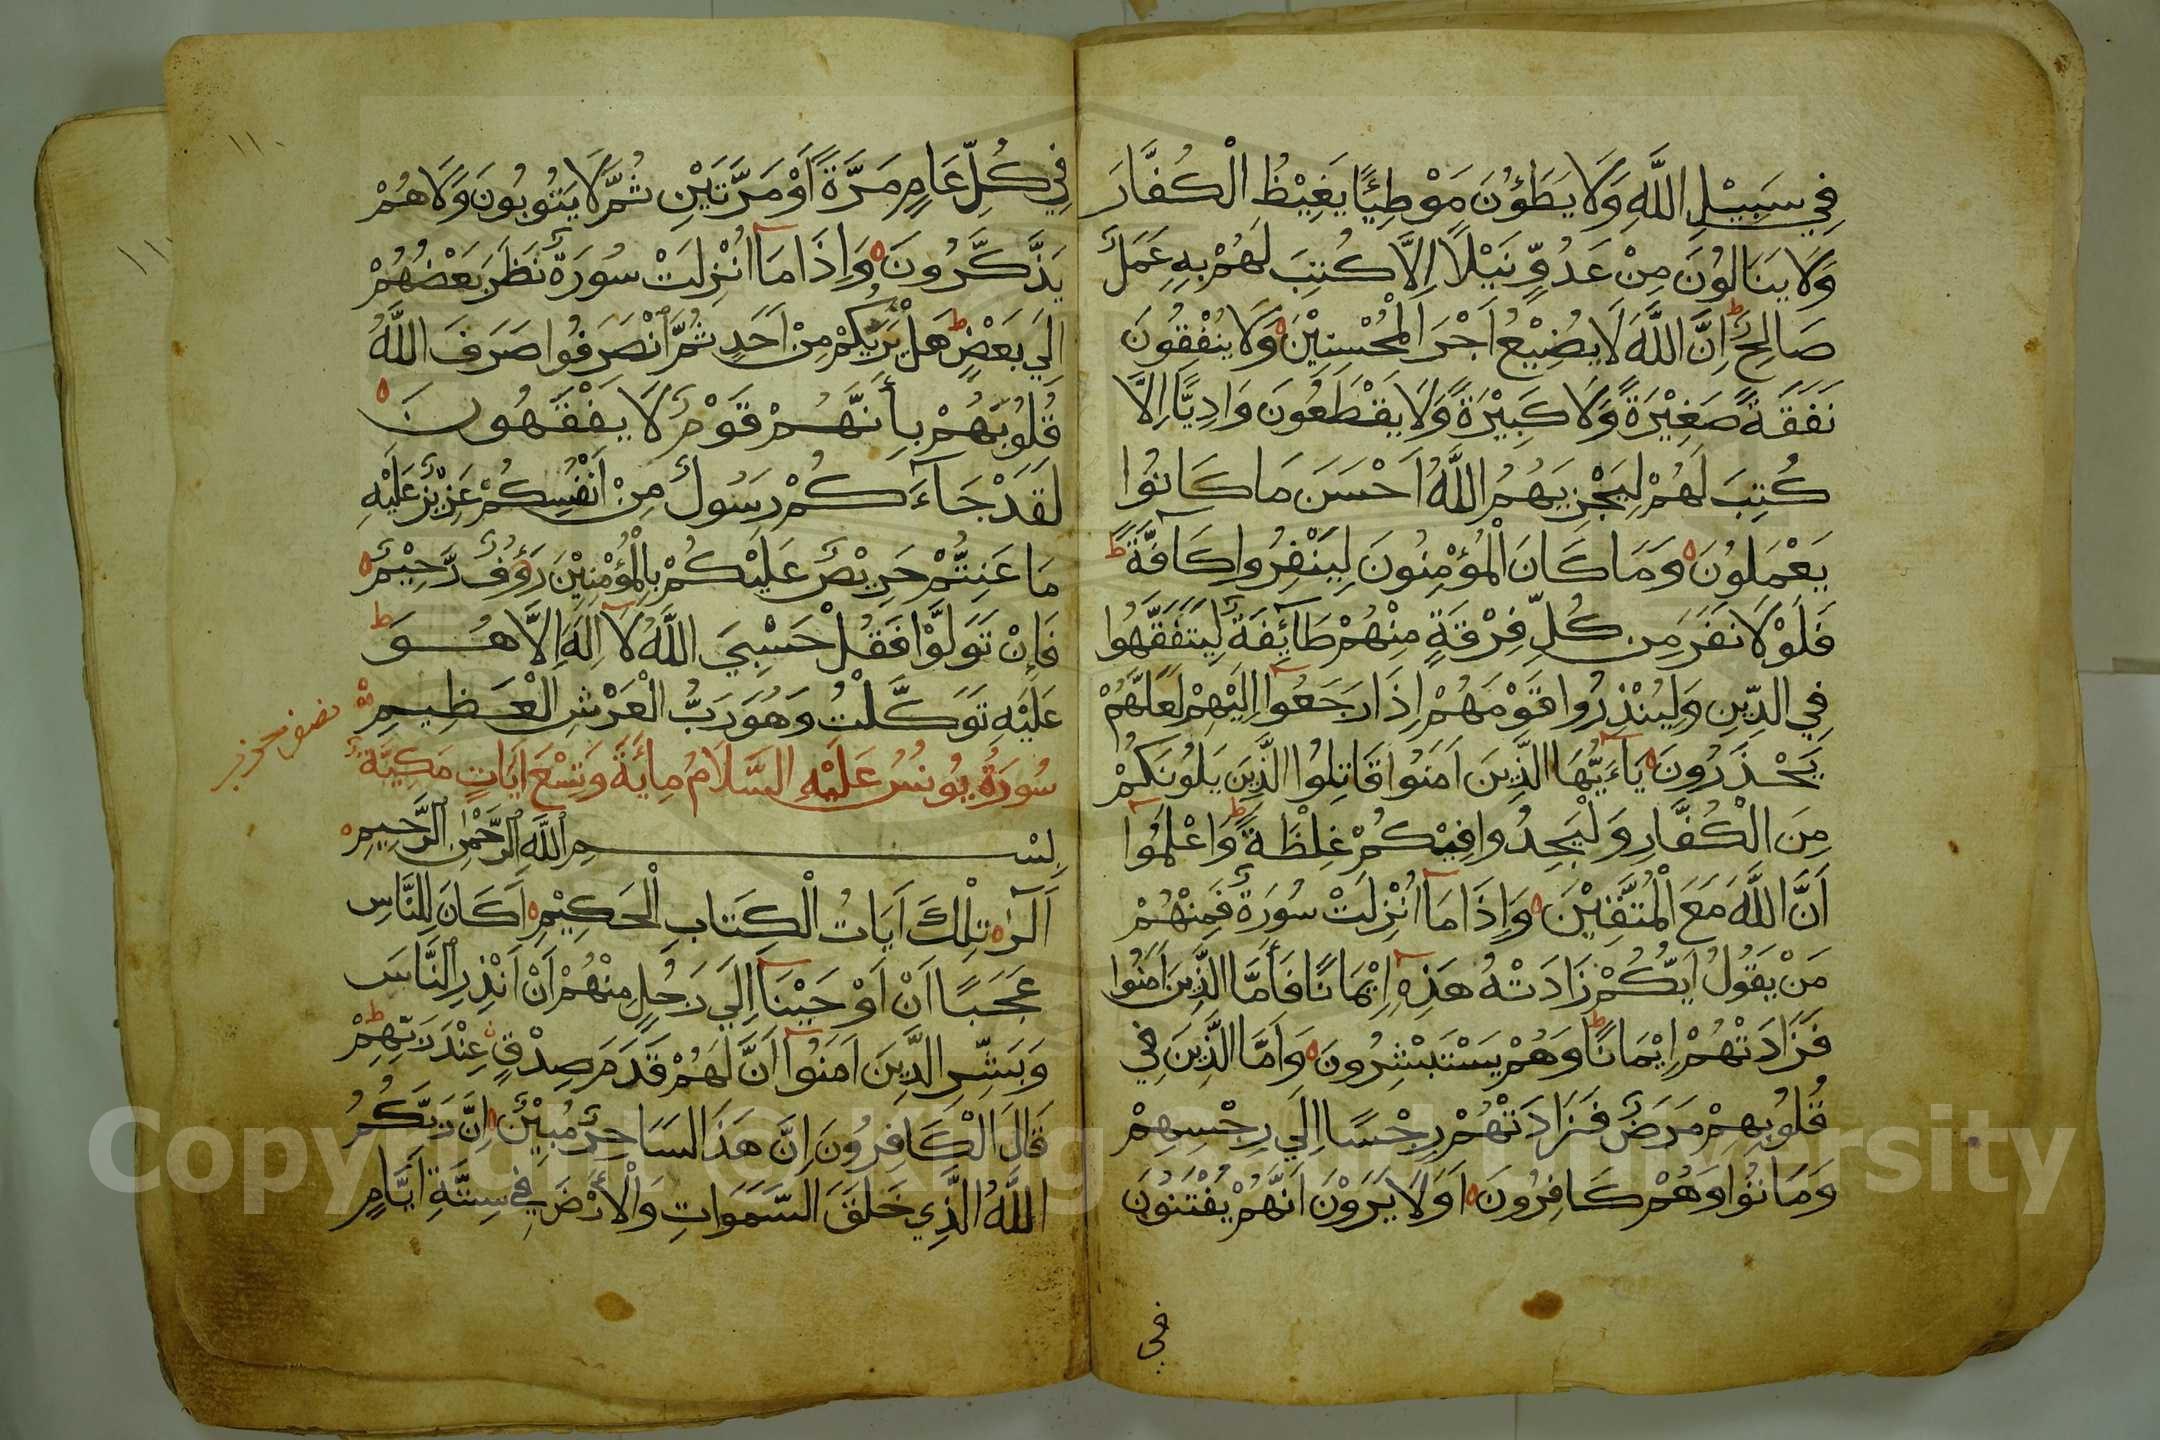 فِي سَبِيْلِ اللَّهِ وَلَا يَطَؤُنَ مَوْطِئًا يَغِيْظُ الْكُفَّارَ
وَلَا يَنَالُوْنَ مِنْ عَدُوٍّ نَيْلًا اِلَّا كُتِبَ لَهُمْ بِهِ عَمَلٌ
صَالِحٌ ط اِنَّ اللَّهَ لَا يُضِيْعُ اَجْرَ الْمُحْسِنِيْنَ ه وَلَا يُنْفِقُونَ
نَفَقَةً صَغِيْرَةً وَلَا كَبِيْرَةً وَلَا يَقْطَعُونَ وَادِيًا اِلَّا
كُتِبَ لَهُمْ لِيَجْزِيَهُمُ اللَّهُ اَحْسَنَ مَا كَانُوْا
يَعْمَلُونَ ه وَمَا كَانَ الْمُؤْمِنُونَ لِيَنْفِرُوا كَآفَّةً ط
فَلَوْلَا نَفَرَ مِن كُلِّ فِرْقَةٍ مِنْهُمْ طَآئِفَةٌ لِيَتَفَقَّهُوا
فِي الدِّيْنِ وَلِيُنْذِرُوا قَوْمَهُمْ اِذَا رَجَعُوا اِلَيْهِمْ لَعَلَّهُمْ
يَحْذَرُونَ ه يَآءَيُّهَا الَّذِيْنَ اٰمَنُوا قَاتِلُوا الَّذِيْنَ يَلُوْنَكُمْ
مِنَ الْكُفَّارِ وَلْيَجِدُوا فِيْكُمْ غِلْظَةً ط وَاعْلَمُوا
اَنَّ اللَّهَ مَعَ الْمُتَّقِيْنَ ه وَاِذَا مَا اُنْزِلَتْ سُوْرَةٌ فَمِنْهُمْ
مَنْ يَقُوْلُ اَيُّكُمْ زَادَتْهُ هَذِهِ اِيْمَانًا فَأَمَّا الَّذِيْنَ اٰمَنُوا
فَزَادَتْهُمْ اِيْمَانًا ط وَهُمْ يَسْتَبْشِرُونَ ه وَاَمَّا الَّذِيْنَ فِي
قُلُوْبِهِمْ مَرَضٌ فَزَادَتْهُمْ رِجْسًا اِلَى رِجْسِهِمْ
وَمَاتُوْا وَهُمْ كَافِرُوْنَ ه اَوَلَا يَرَوْنَ اَنَّهُمْ يُفْتَنُوْنَ
في
١١٠
فِي كُلِّ عَامٍ مَرَّةً اَوْ مَرَّتَيْنِ ثُمَّ لَا يَتُوْبُونَ وَلَا هُمْ
يَذَّكَّرُونَ ه وَاِذَا مَا اُنْزِلَتْ سُوْرَةٌ نَظَرَ بَعْضُهُمْ
اِلَى بَعْضٍ ط هَلْ يَرَيكُمْ مِنْ اَحَدٍ ثُمَّ انْصَرَفُوا صَرَفَ اللَّهُ
قُلُوْبَهُمْ بِأَنَّهُمْ قَوْمٌ لَا يَفْقَهُونَ ه
لَقَدْ جَآءَكُمْ رَسُولٌ مِنْ اَنْفُسِكُمْ عَزِيْزٌ عَلَيْهِ
مَا عَنِتُّمْ حَرِيْصٌ عَلَيْكُمْ بِالْمُؤْمِنِيْنَ رَؤُفٌ رَّحِيْمٌ ه
فَاِنْ تَوَلَّوْا فَقُلْ حَسْبِيَ اللَّهُ لَا اِلَهَ اِلَّا هُوَ ط
عَلَيْهِ تَوَكَّلْتُ وَهُوَ رَبُّ الْعَرْشِ الْعَظِيْمِ ه
نصف حزب
سُوْرَةُ يُوْنُسَ عَلَيْهِ السَّلَامُ مِايَةٌ وَتِسْعُ اٰيَاتٍ مَكِيَّةٌ
بِسْمِ اللَّهِ الرَّحْمٰنِ الرَّحِيْمِ ه
الٓرٰ ه تِلْكَ اٰيَاتُ الْكِتَابِ الْحَكِيْمِ ه اَكَانَ لِلنَّاسِ
عَجَبًا اَنْ اَوْحَيْنَا اِلَى رَجُلٍ مِنْهُمْ اَنْ اَنْذِرِ النَّاسَ
وَبَشِّرِ الَّذِيْنَ اٰمَنُوا اَنَّ لَهُمْ قَدَمَ صِدْقٍ عِنْدَ رَبِّهِمْ ط
قَالَ الْكَافِرُوْنَ اِنَّ هَذَا لَسَاحِرٌ مُبِيْنٌ ه اِنَّ رَبَّكُمُ
اللَّهُ الَّذِي خَلَقَ السَّمَوَاتِ وَالْأَرْضَ فِي سِتَّةِ اَيَّامٍ
Copyright © King Saud University